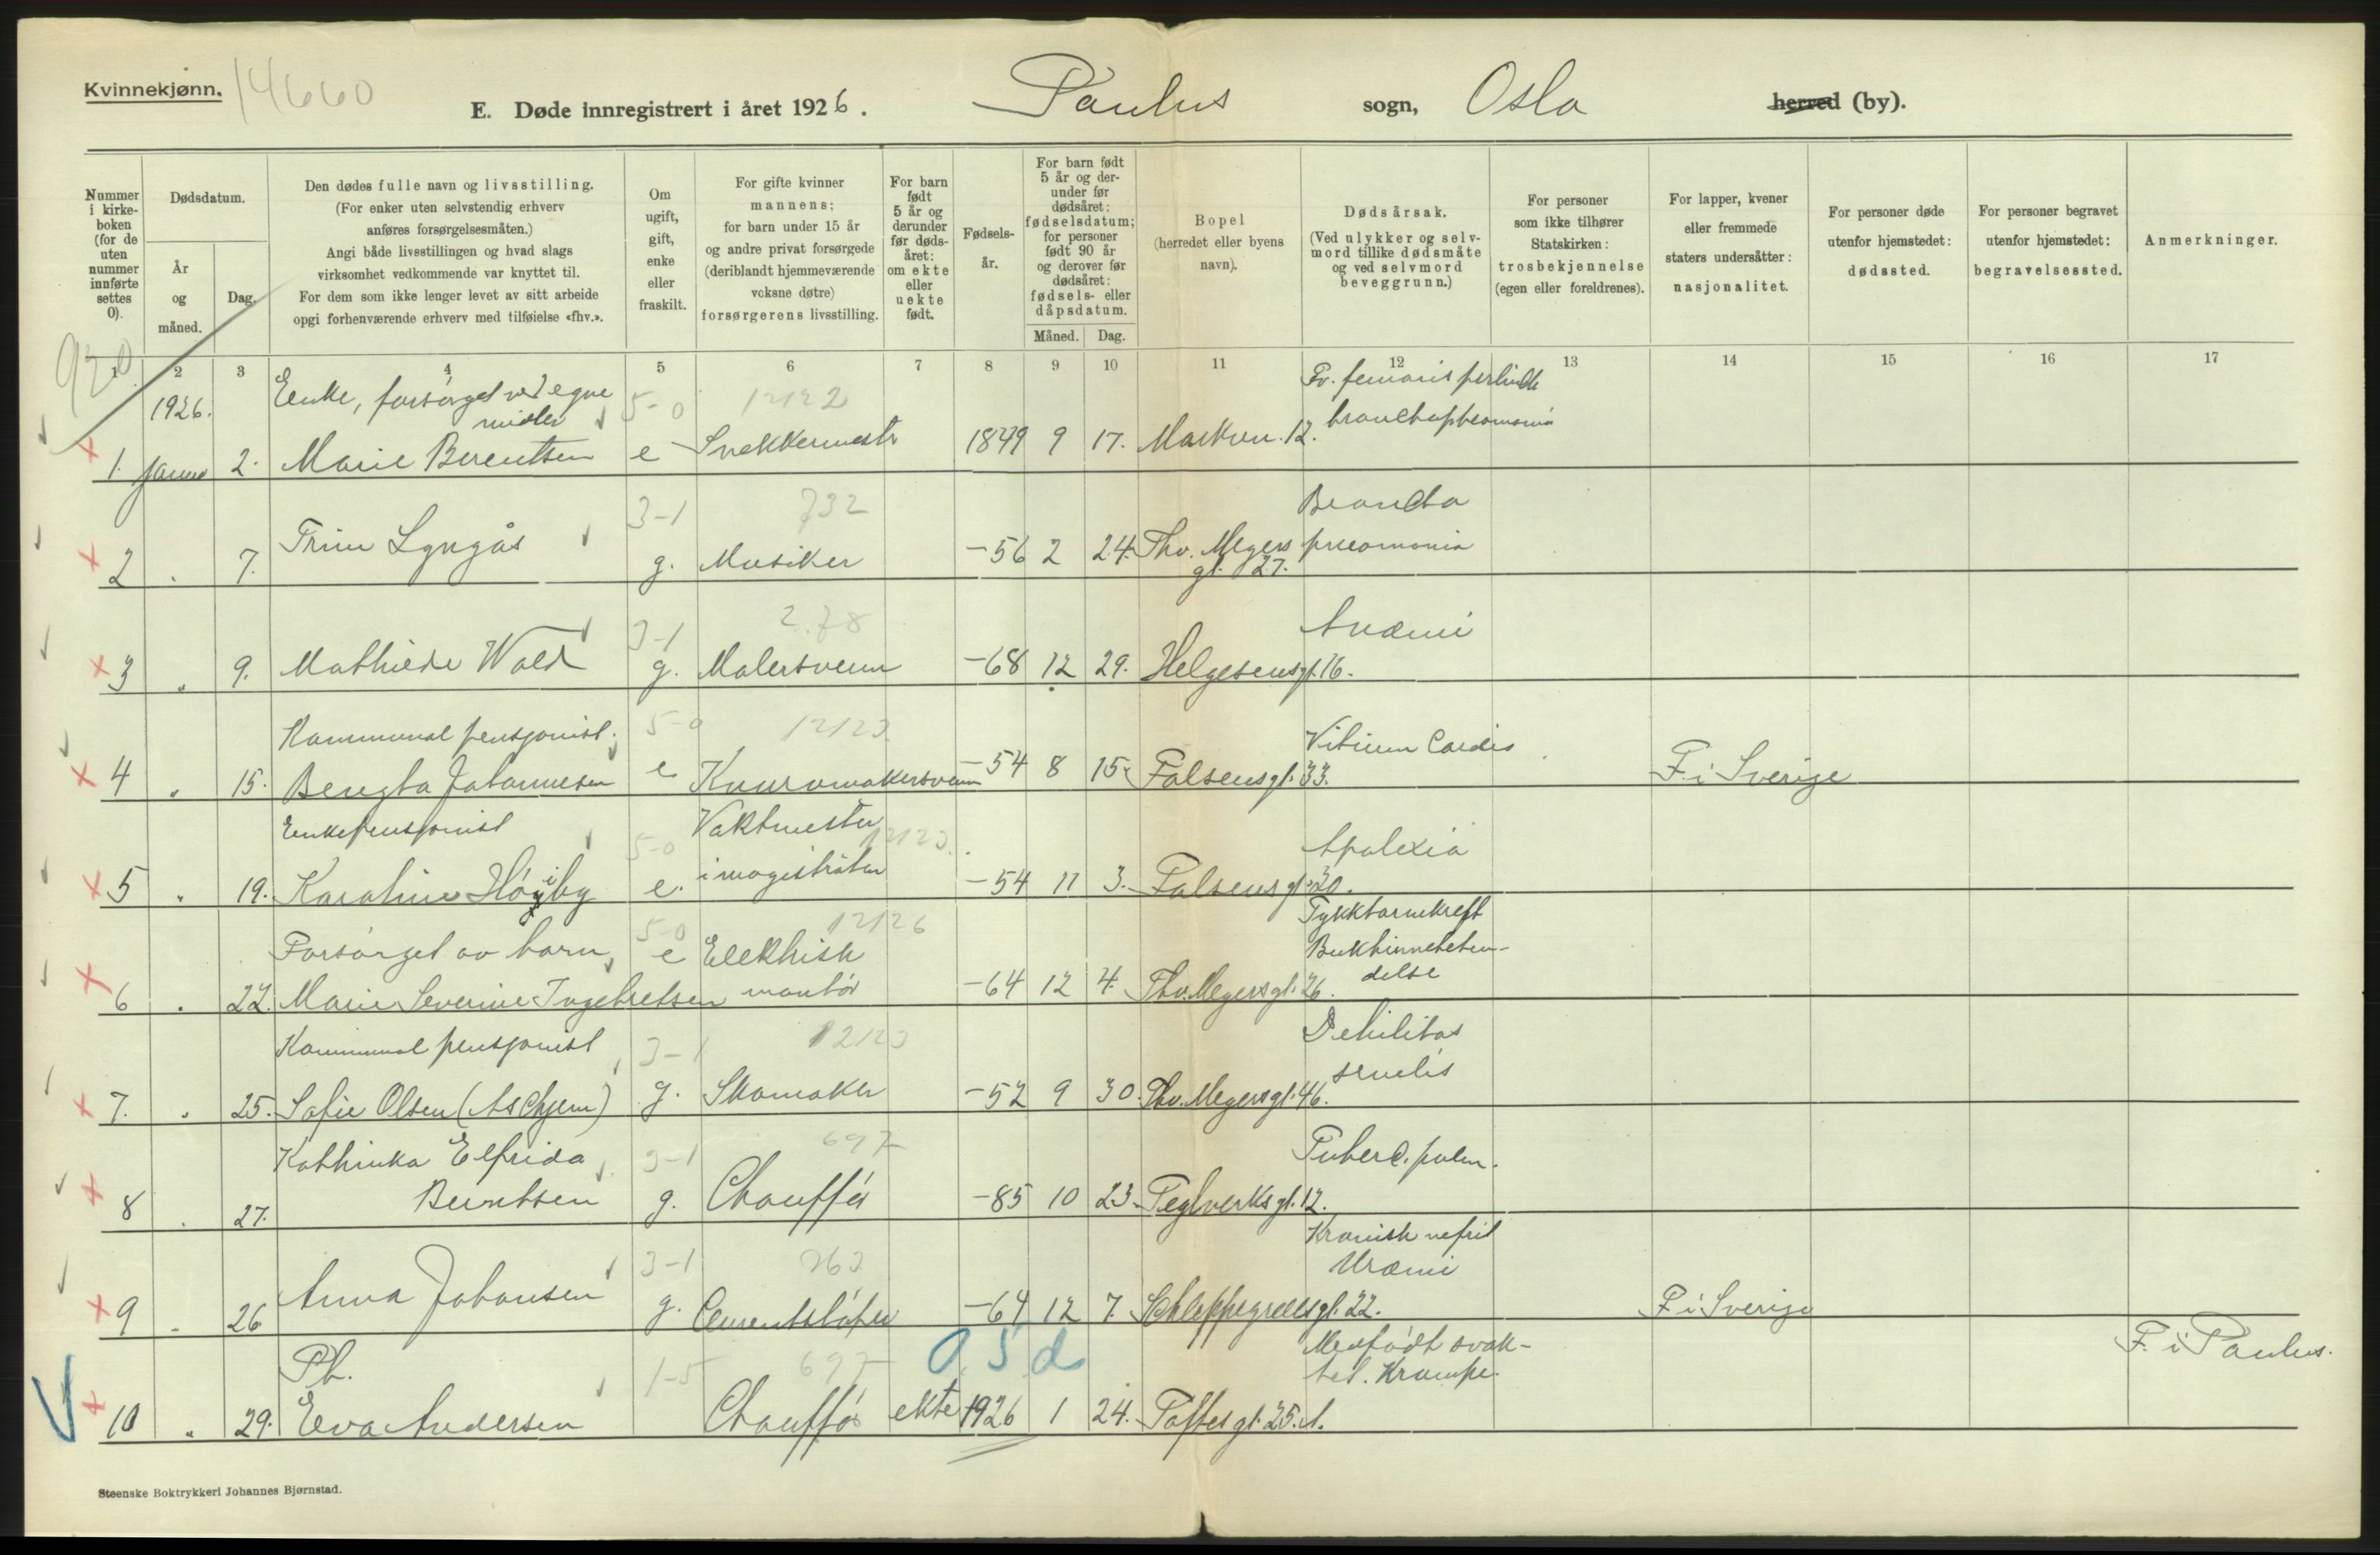 Kvinnekjønn. 14660
E. Døde innregistrert i året 1926. Paulus sogn, Oslo herred (by).
Nummer i kirkeboken (for de uten nummer innførte settes 0).
Dødsdatum.
År og måned.
Dag.
Den dødes fulle navn og livsstilling.
(For enker uten selvstendig erhverv
anføres forsørgelsesmåten.)
Angi både livsstillingen og hvad slags
virksomhet vedkommende var knyttet til.
For dem som ikke lenger levet av sitt arbeide
opgi forhenværende erhverv med tilføielse «fhv.».
Om ugift, gift, enke eller fraskilt.
For gifte kvinner
mannens;
for barn under 15 år
og andre privat forsørgede
(deriblandt hjemmeværende
voksne døtre)
forsørgerens livsstilling.
For barn født 5 år og derunder før dødsåret: om ekte eller uekte født.
Fødselsår.
For barn født 5 år og derunder før dødsåret: fødselsdatum; for personer født 90 år og derover før dødsåret: fødsels- eller dåpsdatum.
Måned. Dag.
Bopel
(herredet eller byens
navn).
Dødsårsak.
(Ved ulykker og selvmord tillike dødsmåte
og ved selvmord
beveggrunn.)
For personer
som ikke tilhører
Statskirken:
trosbekjennelse
(egen eller foreldrenes).
For lapper, kvener
eller fremmede
staters undersåtter:
nasjonalitet.
For personer døde
utenfor hjemstedet:
dødssted.
For personer begravet
utenfor hjemstedet:
begravelsessted.
Anmerkninger.
920
1 2 3 4 5 6 7 8 9 10 11 12 13 14 15 16 17
1926. Enke, forsørget ved egne midler 5-0 12122 Fr. femoris
1. Januar 2. Marie Berentsen e Snekkermestr 1849 9 17. Markvn. 12.
3-1 732 Broncho
2 " 7. Trine Lyngås g. Musiker -56 2 24. Thv. Meyers gt. 27. pneomonia
3-1 278 Anæmi
3 " 9. Mathilde Wold g. Malersvenn -68 12 29. Helgesensgt. 16.
Kommunal pensjonist. 5-0 12123 Vitium Cordis
4 " 15. Bengta Johannesen e -54 8 15. Falsensgt. 33. F. i Sverige
Enkepensjonist 5-0 Vaktmester 12123 Apolexia
5 " 19. Karoline Høiby e. i magistraten -54 11 3. Falsensgt. 30.
Forsørget av barn, 5-0 e Elektrisk 12126 Tykktarmkreft
Bukhinnebeten-
6 " 22. Marie Severine Ingebretsen montør -64 12 4. Thv. Meyersgt. 26. delse
Kommunal pensjonist 3-1 12123 Debilitas
7. " 25. Sofie Olsen (Aschjem) g. Skomaker -52 9 30. Thv. Meyersgt. 46. senilis
Kathinka Elfrida 3-1 697 Tuberc. pulm.
8 " 27. Berntsen g. Chauffør -85 10 23. Teglverksgt. 12.
3-1 263 Kronisk nefrit
Uræmi
9 " 26 Anna Johansen g. Cementstøper -64 12 7. Schleppegrellsgt. 22. F. i Sverige
Pb. 1-5 697 0 5 d Medfødt svak-
het. Krampe. F. i Paulus.
10 " 29. Eva Andersen Chauffør ekte 1926 1 24. Toftesgt. 25. A.
Steenske Boktrykkeri Johannes Bjørnstad.